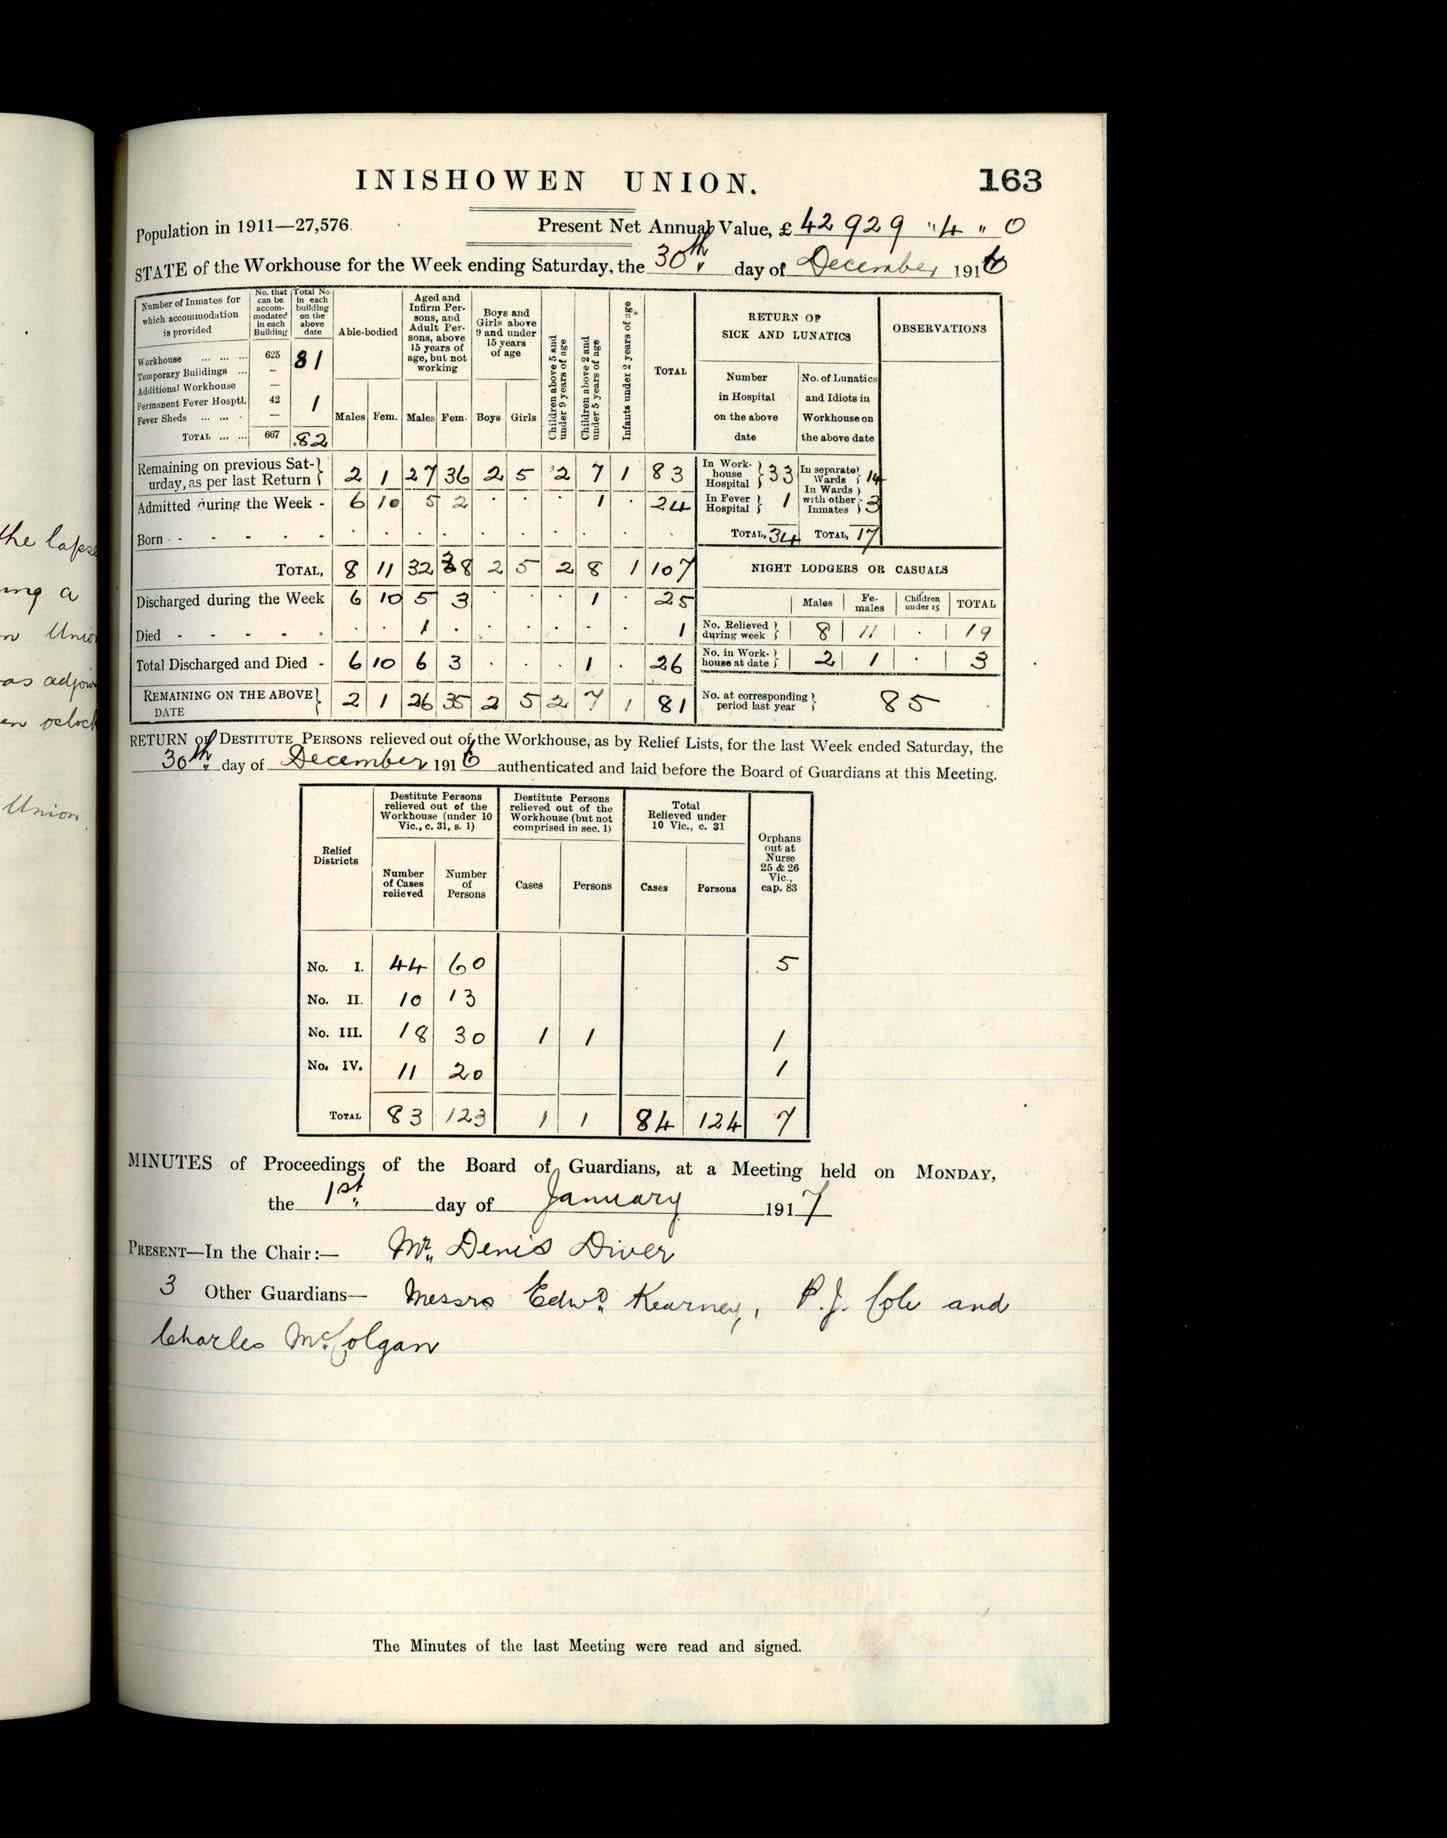 INISHOWEN UNION. 163
Population in 1911—27,576. Present Net Annual Value, £ 42929 " 4 " 0
STATE of the Workhouse for the Week ending Saturday, the 30th day of December 1916
Number of Inmates for which accommodation is provided | No. that can be accommodated in each Building | Total No. in each building on the above date | Able-bodied | Aged and Infirm Persons, and Adult Persons, above 15 years of age, but not working | Boys and Girls above 9 and under 15 years of age | Children above 5 and under 9 years of age | Children above 2 and under 5 years of age | Infants under 2 years of age | TOTAL | RETURN OF SICK AND LUNATICS | OBSERVATIONS
Workhouse ... ... ... 625 81
Temporary Buildings ... –
Additional Workhouse —
Permanent Fever Hosptl. 42 1
Fever Sheds ... ... . —
TOTAL ... ... 667 82
Males Fem. Males Fem. Boys Girls
Number in Hospital on the above date | No. of Lunatics and Idiots in Workhouse on the above date
Remaining on previous Saturday, as per last Return 2 1 27 36 2 5 2 7 1 83
Admitted during the Week - 6 10 5 2 . . . 1 . 24
Born - - - - - - . . . . . . . . . .
TOTAL, 8 11 32 38 2 5 2 8 1 107
Discharged during the Week 6 10 5 3 . . . 1 . 25
Died - - - - - . . 1 . . . . . . 1
Total Discharged and Died - 6 10 6 3 . . . 1 . 26
REMAINING ON THE ABOVE DATE 2 1 26 35 2 5 2 7 1 81
In Workhouse Hospital 33 In separate Wards 14
In Fever Hospital 1 In Wards with other Inmates 3
TOTAL, 34 TOTAL, 17
NIGHT LODGERS OR CASUALS
Males Females Children under 15 TOTAL
No. Relieved during week 8 11 . 19
No. in Workhouse at date 2 1 . 3
No. at corresponding period last year 85
RETURN OF DESTITUTE PERSONS relieved out of the Workhouse, as by Relief Lists, for the last Week ended Saturday, the
30th day of December 1916 authenticated and laid before the Board of Guardians at this Meeting.
Relief Districts | Destitute Persons relieved out of the Workhouse (under 10 Vic., c. 31, s. 1) | Destitute Persons relieved out of the Workhouse (but not comprised in sec. 1) | Total Relieved under 10 Vic., c. 31 | Orphans out at Nurse 25 & 26 Vic., cap. 83
Number of Cases relieved | Number of Persons | Cases | Persons | Cases | Persons
No. I. 44 60 5
No. II. 10 13
No. III. 18 30 1 1 1
No. IV. 11 20 1
TOTAL 83 123 1 1 84 124 7
MINUTES of Proceedings of the Board of Guardians, at a Meeting held on MONDAY,
the 1st day of January 1917
PRESENT—In the Chair:— Mr. Denis Diver
3 Other Guardians— Messrs Edwd. Kearney, P.J. Cole and
Charles McColgan
The Minutes of the last Meeting were read and signed.
the lapse
ing a
Union
as adjou
en oclock
Union.